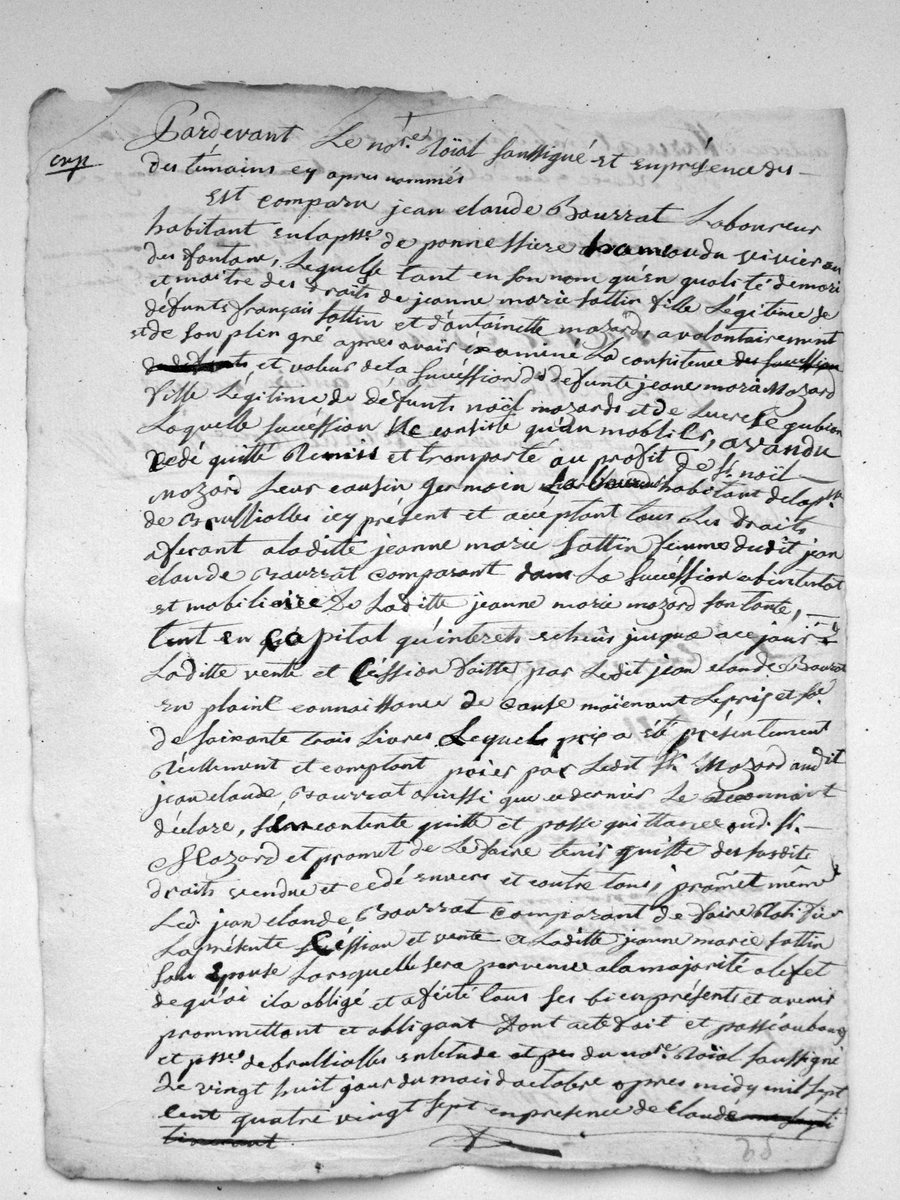 Pardevant Le nore Roïal soussigné et en présence des
des témoins cy apres nommés
Est comparu jean claude Bourrat Laboureur
habitant en la psse de ponnessiere hameau du vivier ou
des fontane, Lequelle tant en son nom qu'en qualité de mari
et maitre des droits de jeanne marie fattin fille Légitime de
défunts français fattin et d'antoinette mozards a volontairement
et de son plin gré apres avoir éxaminé La consistence des sucession
et valeur de la sucession de défunte jeanne marie Mozard
fille Légitime de défunts noël mozards et de Lucresse gubian
Laquelle sucéssion ne consiste qu'en mobilies, a vandu
cedé quitté Remiss et transporté au profit de sr. noël
Mozard Leur cousin germain habitant de la psse
de Brullialles icy présent et aceptant tous Les droits
aferant a laditte jeanne marie fattin femme dudit jean
claude Bourrat comparant dans La sucéssion abintentat
et mobiliaire de Laditte jeanne marie mozard son tante,
tent en capital qu'interets echeus jusqua ace jour
Laditte vente et cession faitte par Ledit jean claude Bourrat
en plaine connaissance de cause moïenant Le prix et so.
de soixante trois Livres Lequel prix a été présentement
Réellement et comptant paier par Ledit sr. Mozard audit
jean claude Bourrat ainssi que ce dernier Le Reconnoit
déclare, s'en contente quitte et passe quittance aud. sr.
Mozard et promet de Le faire tenir quitte des susdits
droits vendue et cedé envers et contre tous, promet même
Led. jean claude Bourrat comparant de faire Ratifier
La présente céssion et vente a Laditte jeanne marie fattin
son épouse Lorsquelle sera parvenue a la majorité a l'efet
de quoi il a obligé et afécté tous ses bien présents et avenir
prommettant et obligant Dont acte fait et passé au bourg
et psse de brullialles en letude et pes du nore Roïal soussigné
Le vingt huit jour du mois d'octobre apres midy mil sept
cent quatre vingt sept en presence de Claude